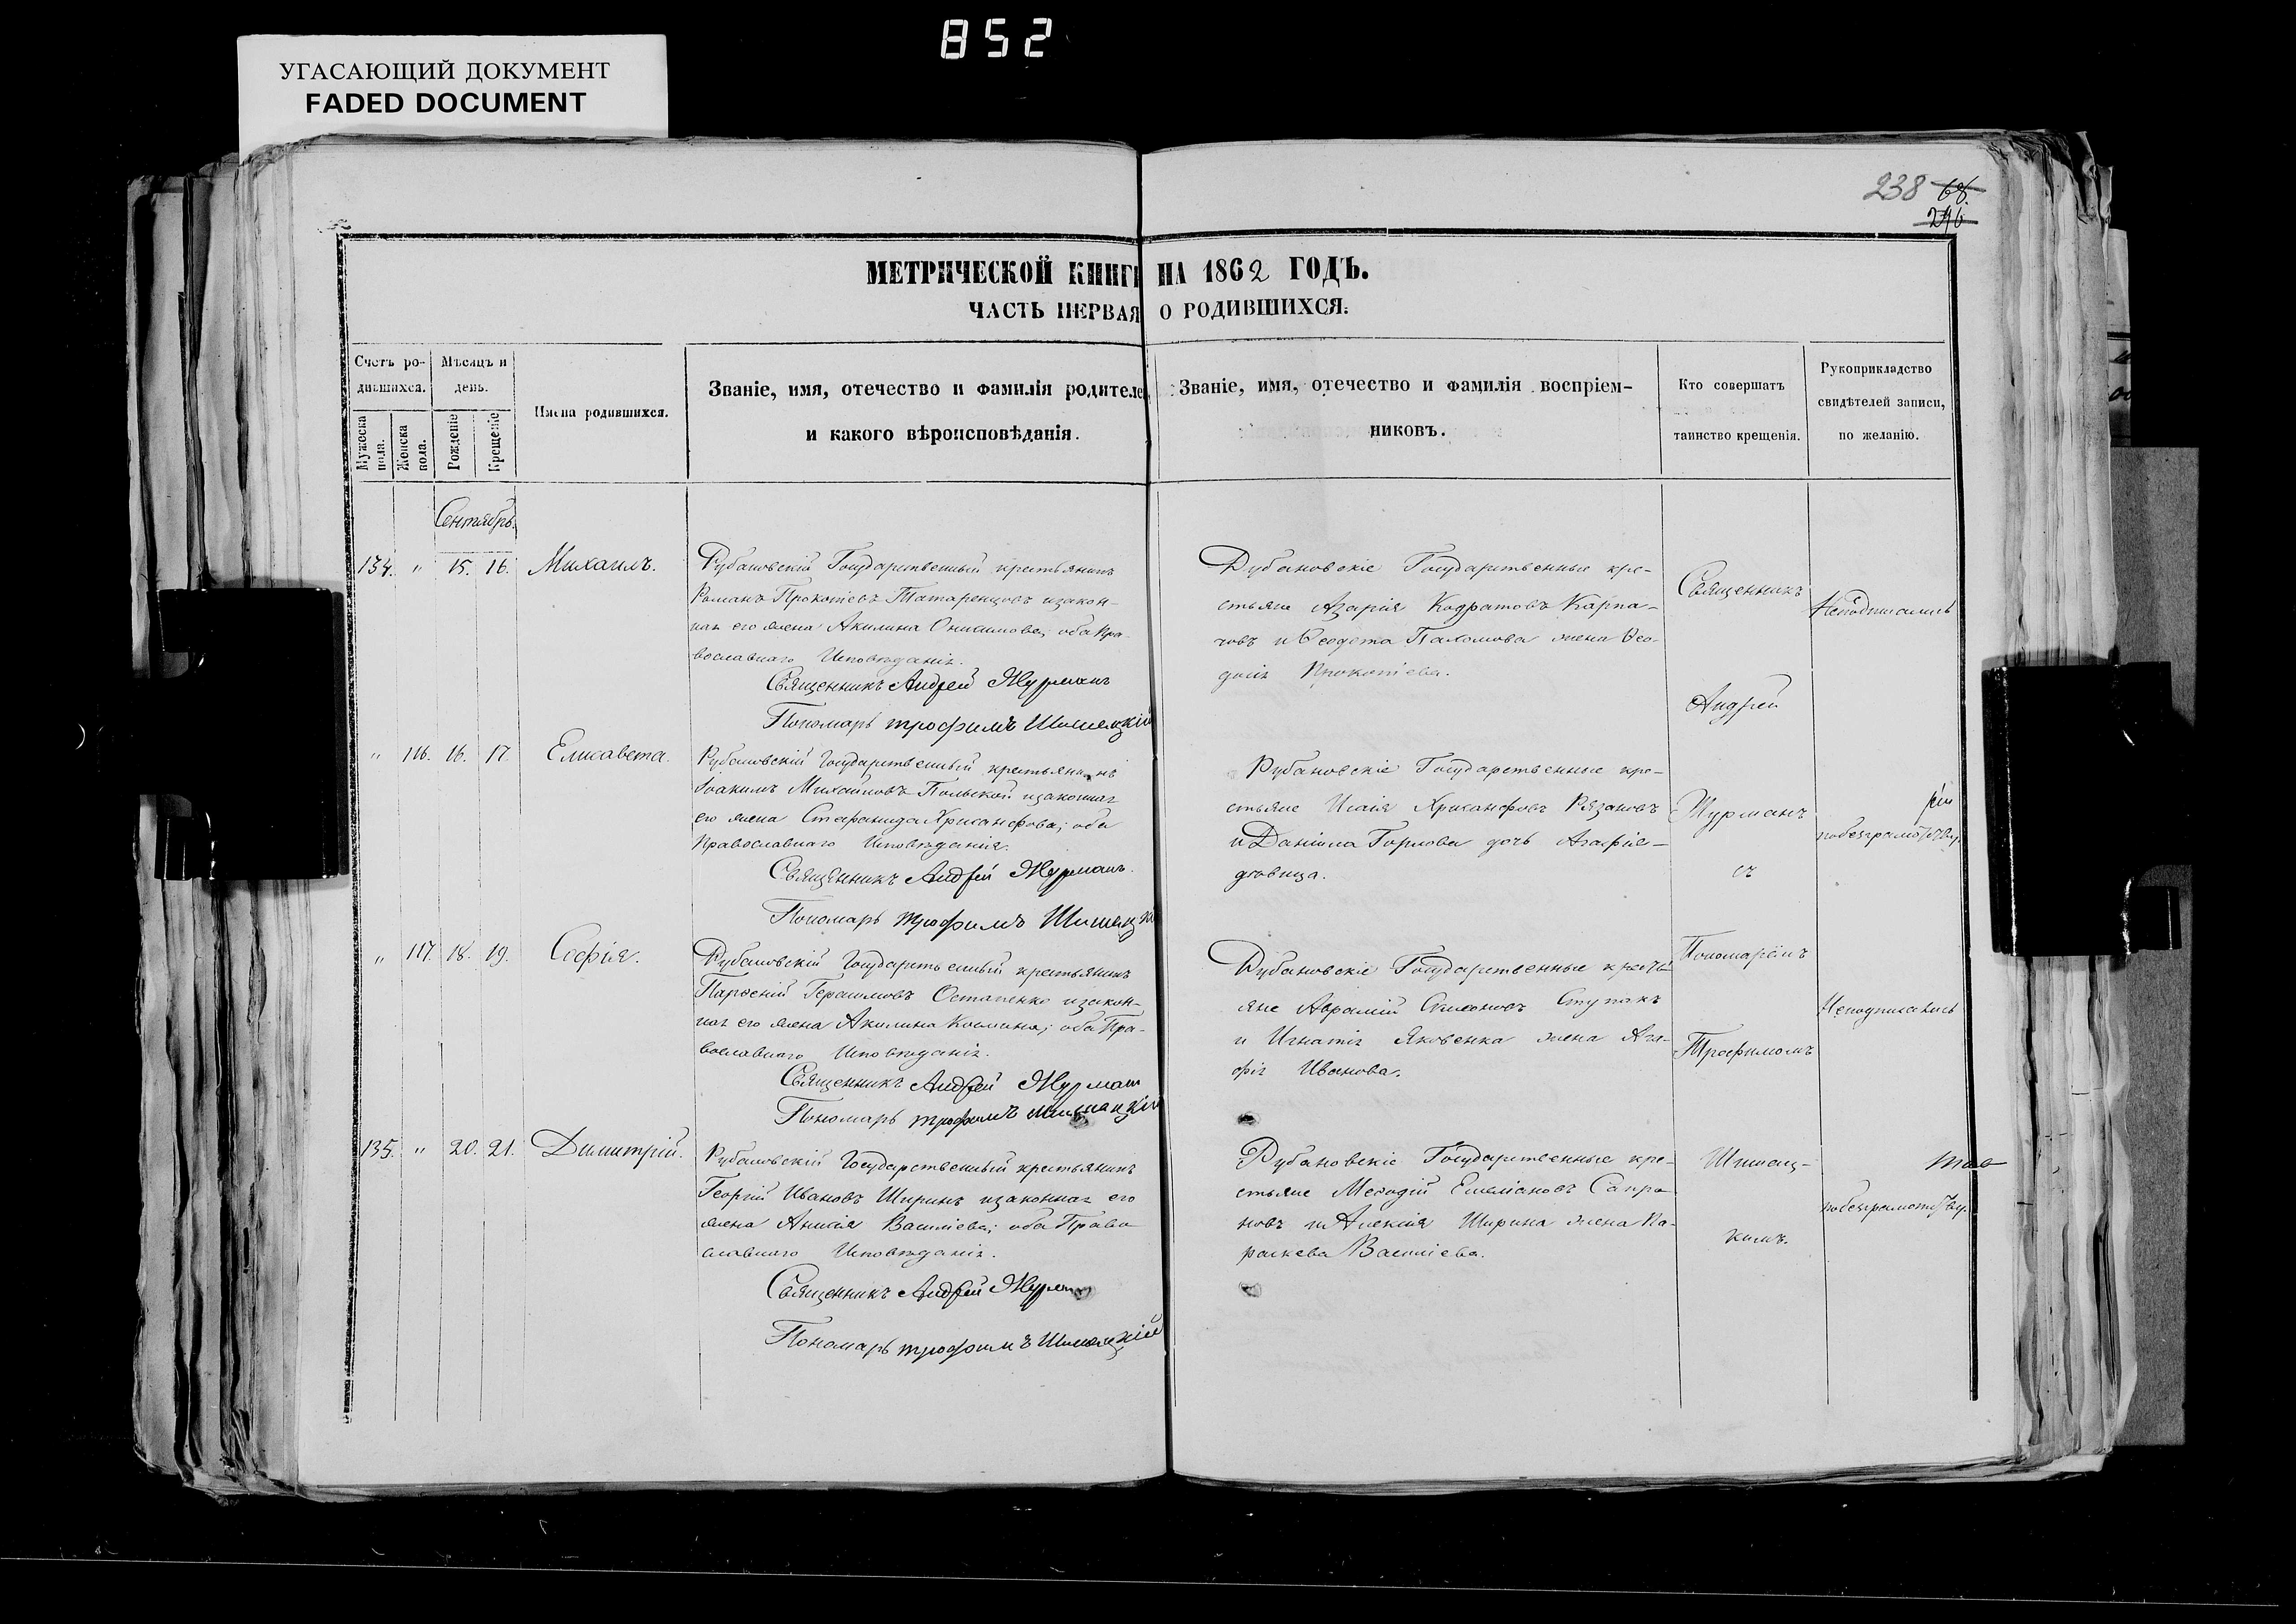 852
УГАСАЮЩИЙ ДОКУМЕНТ
FADED DOCUMENT
238 68.
246
МЕТРИЧЕСКОЙ КНИГИ НА 1862 ГОДЪ.
ЧАСТЬ ПЕРВАЯ О РОДИВШИХСЯ.
Счетъ ро-
дившихся.
Мужеска
пола.
Женска
пола.
Мѣсяцъ и
день.
Рожденіе
Крещеніе
Имена родившихся.
Званіе, имя, отечество и фамилія родителей,
и какого вѣроисповѣданія.
Званіе, имя, отечество и фамилія воспріем-
никовъ.
Кто совершатъ
таинство крещенія.
Рукоприкладство
свидѣтелей записи,
по желанію.
Сентябрь.
134. " 15. 16. Михаилъ.
Рубановскій Государственный крестьянинъ
Романъ Прокопіевъ Татаренцовъ изакон-
ная его жена Акилина Онисимова; оба Пра-
вославнаго Исповѣданія.
Священникъ Андрей Журманъ
Пономарь Трофимъ Шишацкій
Рубановскіе Государственные кре-
стьяне Азарія Кодратовъ Карпа-
човъ и Ѳеодота Пахомова жена Ѳео-
досія Прокопіева.
" 116. 16. 17. Елисавета.
Рубановскій Государственный крестьянинъ
Іоакимъ Михайловъ Польской изаконная
его жена Стефанида Хрисанфова; оба
Православнаго Исповѣданія.
Священникъ Андрей Журманъ.
Пономарь Трофимъ Шишацкій
Рубановскіе Государственные кре-
стьяне Исаія Хрисанфовъ Рязановъ
и Даніила Горлова дочь Агафія-
дѣвица.
" 117. 18. 19. Софія.
Рубановскій Государственный крестьянинъ
Парѳеній Герасимовъ Остапенко изакон-
ная его жена Акилина Космина; оба Пра-
вославнаго Исповѣданія.
Священникъ Андрей Журман
Пономарь Трофимъ Шишацкій
Рубановскіе Государственные кресть-
яне Аврамій Симоновъ Ступакъ
и Игнатія Яковенка жена Ага-
фія Иванова.
135. " 20. 21. Димитрій.
Рубановскій Государственный крестьянинъ
Георгій Ивановъ Ширинъ изаконная его
жена Анисія Василіева; оба Право
славнаго Исповѣданія.
Священникъ Андрей Журман
Пономарь Трофимъ Шишацкій
Рубановскіе Государственные кре-
стьяне Меѳодій Емеліановъ Сапро
новъ и Алексія Ширина жена Па-
раскева Василіева.
Священникъ
Андрей
Журманъ
съ
Пономарёмъ
Трофимомъ
Шишац-
кимъ.
Неподписались
побезграмотству.
Неподписались
побезграмотству.